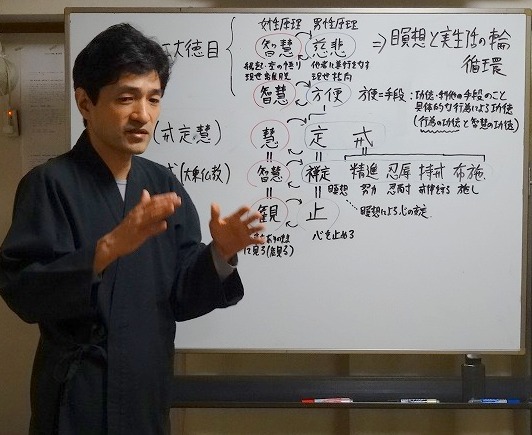 女性原理 男性原理
大徳目 智慧 慈悲 ⇒ 瞑想と実生活の輪
循環
現世否定
現世社内
智慧 方便 方便=手段:功徳・利他の手段のこと
具体的な行為による功徳
(行為の功徳と智慧の功徳)
(戒定慧) 慧 定 戒
(大乗仏教) 智慧 禅定 精進 忍辱 持戒 布施
瞑想 努力 忍耐 戒律を守る 施し
観 止 瞑想による心の安定
心を止める
に見る